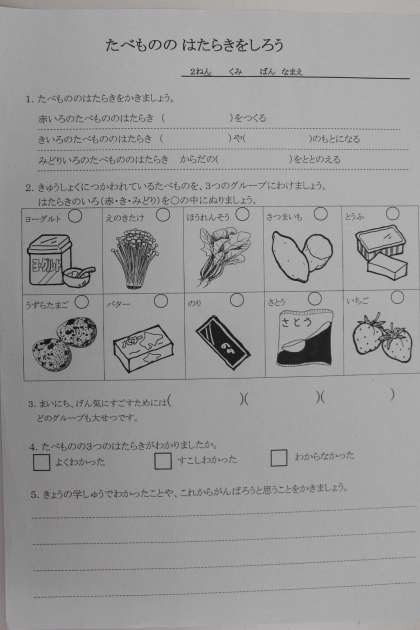 たべものの はたらきをしろう
2ねん　くみ　ばん なまえ
1. たべもののはたらきをかきましょう。
赤いろのたべもののはたらき （　　　）をつくる
きいろのたべもののはたらき （　　　）や（　　　）のもとになる
みどりいろのたべもののはたらき　からだの（　　　）をととのえる
2. きゅうしょくにつかわれているたべものを、3つのグループにわけましょう。
はたらきのいろ（赤・き・みどり）を○の中にぬりましょう。
ヨーグルト ○ えのきたけ ○ ほうれんそう ○ さつまいも ○ とうふ ○
ヨーグルト
うずらたまご ○ バター ○ のり ○ さとう ○ いちご ○
さとう
3. まいにち、げん気にすごすためには（　　　）（　　　）（　　　）
どのグループも大せつです。
4. たべものの3つのはたらきがわかりましたか。
□ よくわかった □ すこしわかった □ わからなかった
5. きょうの学しゅうでわかったことや、これからがんばろうと思うことをかきましょう。